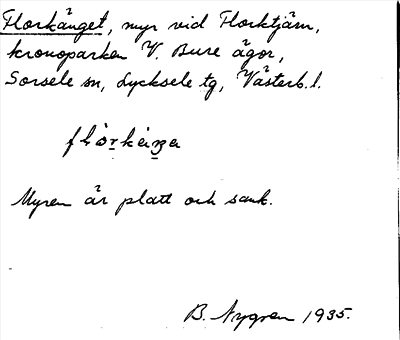 Florkänget, myr vid Florktjärn,
kronoparken V. Bure ägor,
Sorsele sn, Lycksele tg, Västerb. l.
Myren är platt och sank.
B. Nygren 1935.